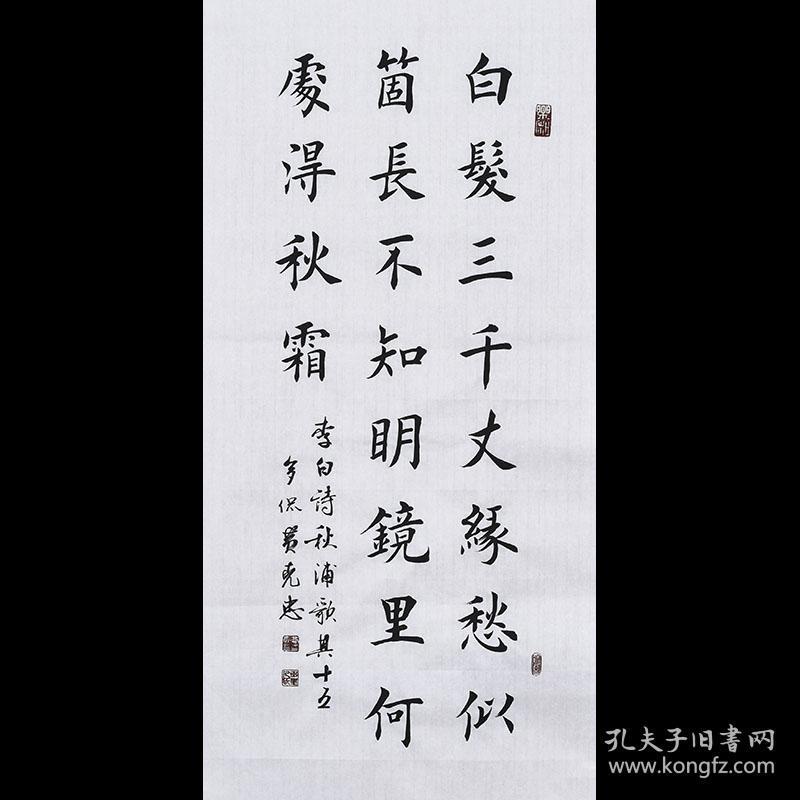 白髮三千丈緣愁似
箇長不知明鏡里何
處得秋霜
李白詩秋浦歌其十五
黄克忠
孔夫子旧书网
www.kongfz.com